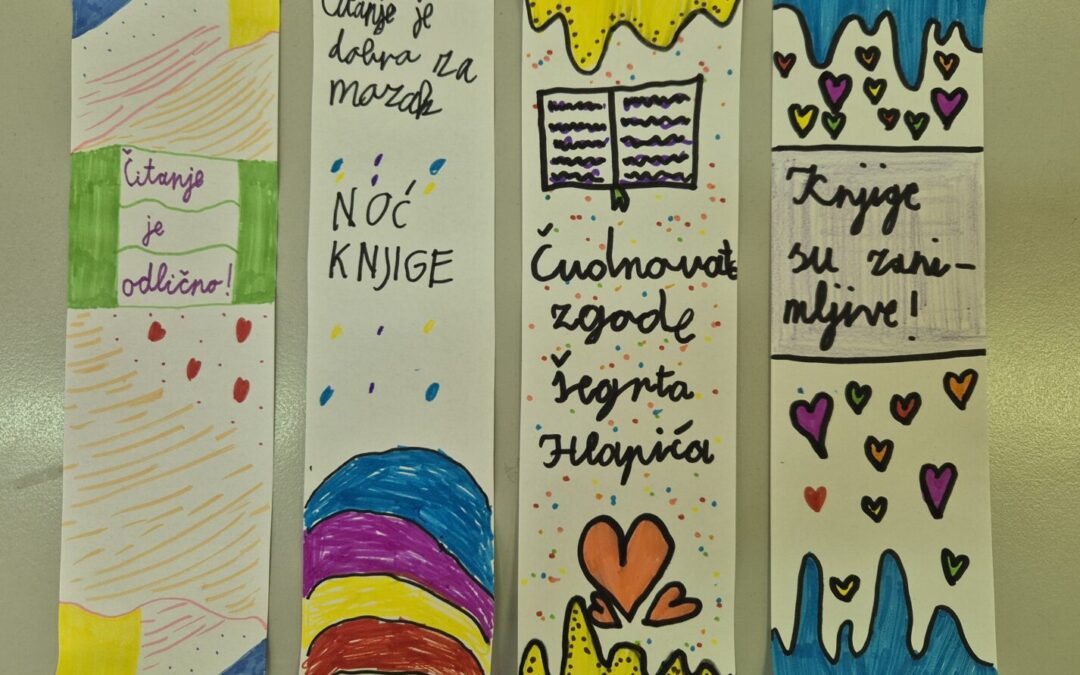 Čitanje
je
odlično!
Čitanje je
dobra za
mozak
NOĆ
KNJIGE
Čudnovate
zgode
Šegrta
Hlapića
Knjige
su zani-
mljive!